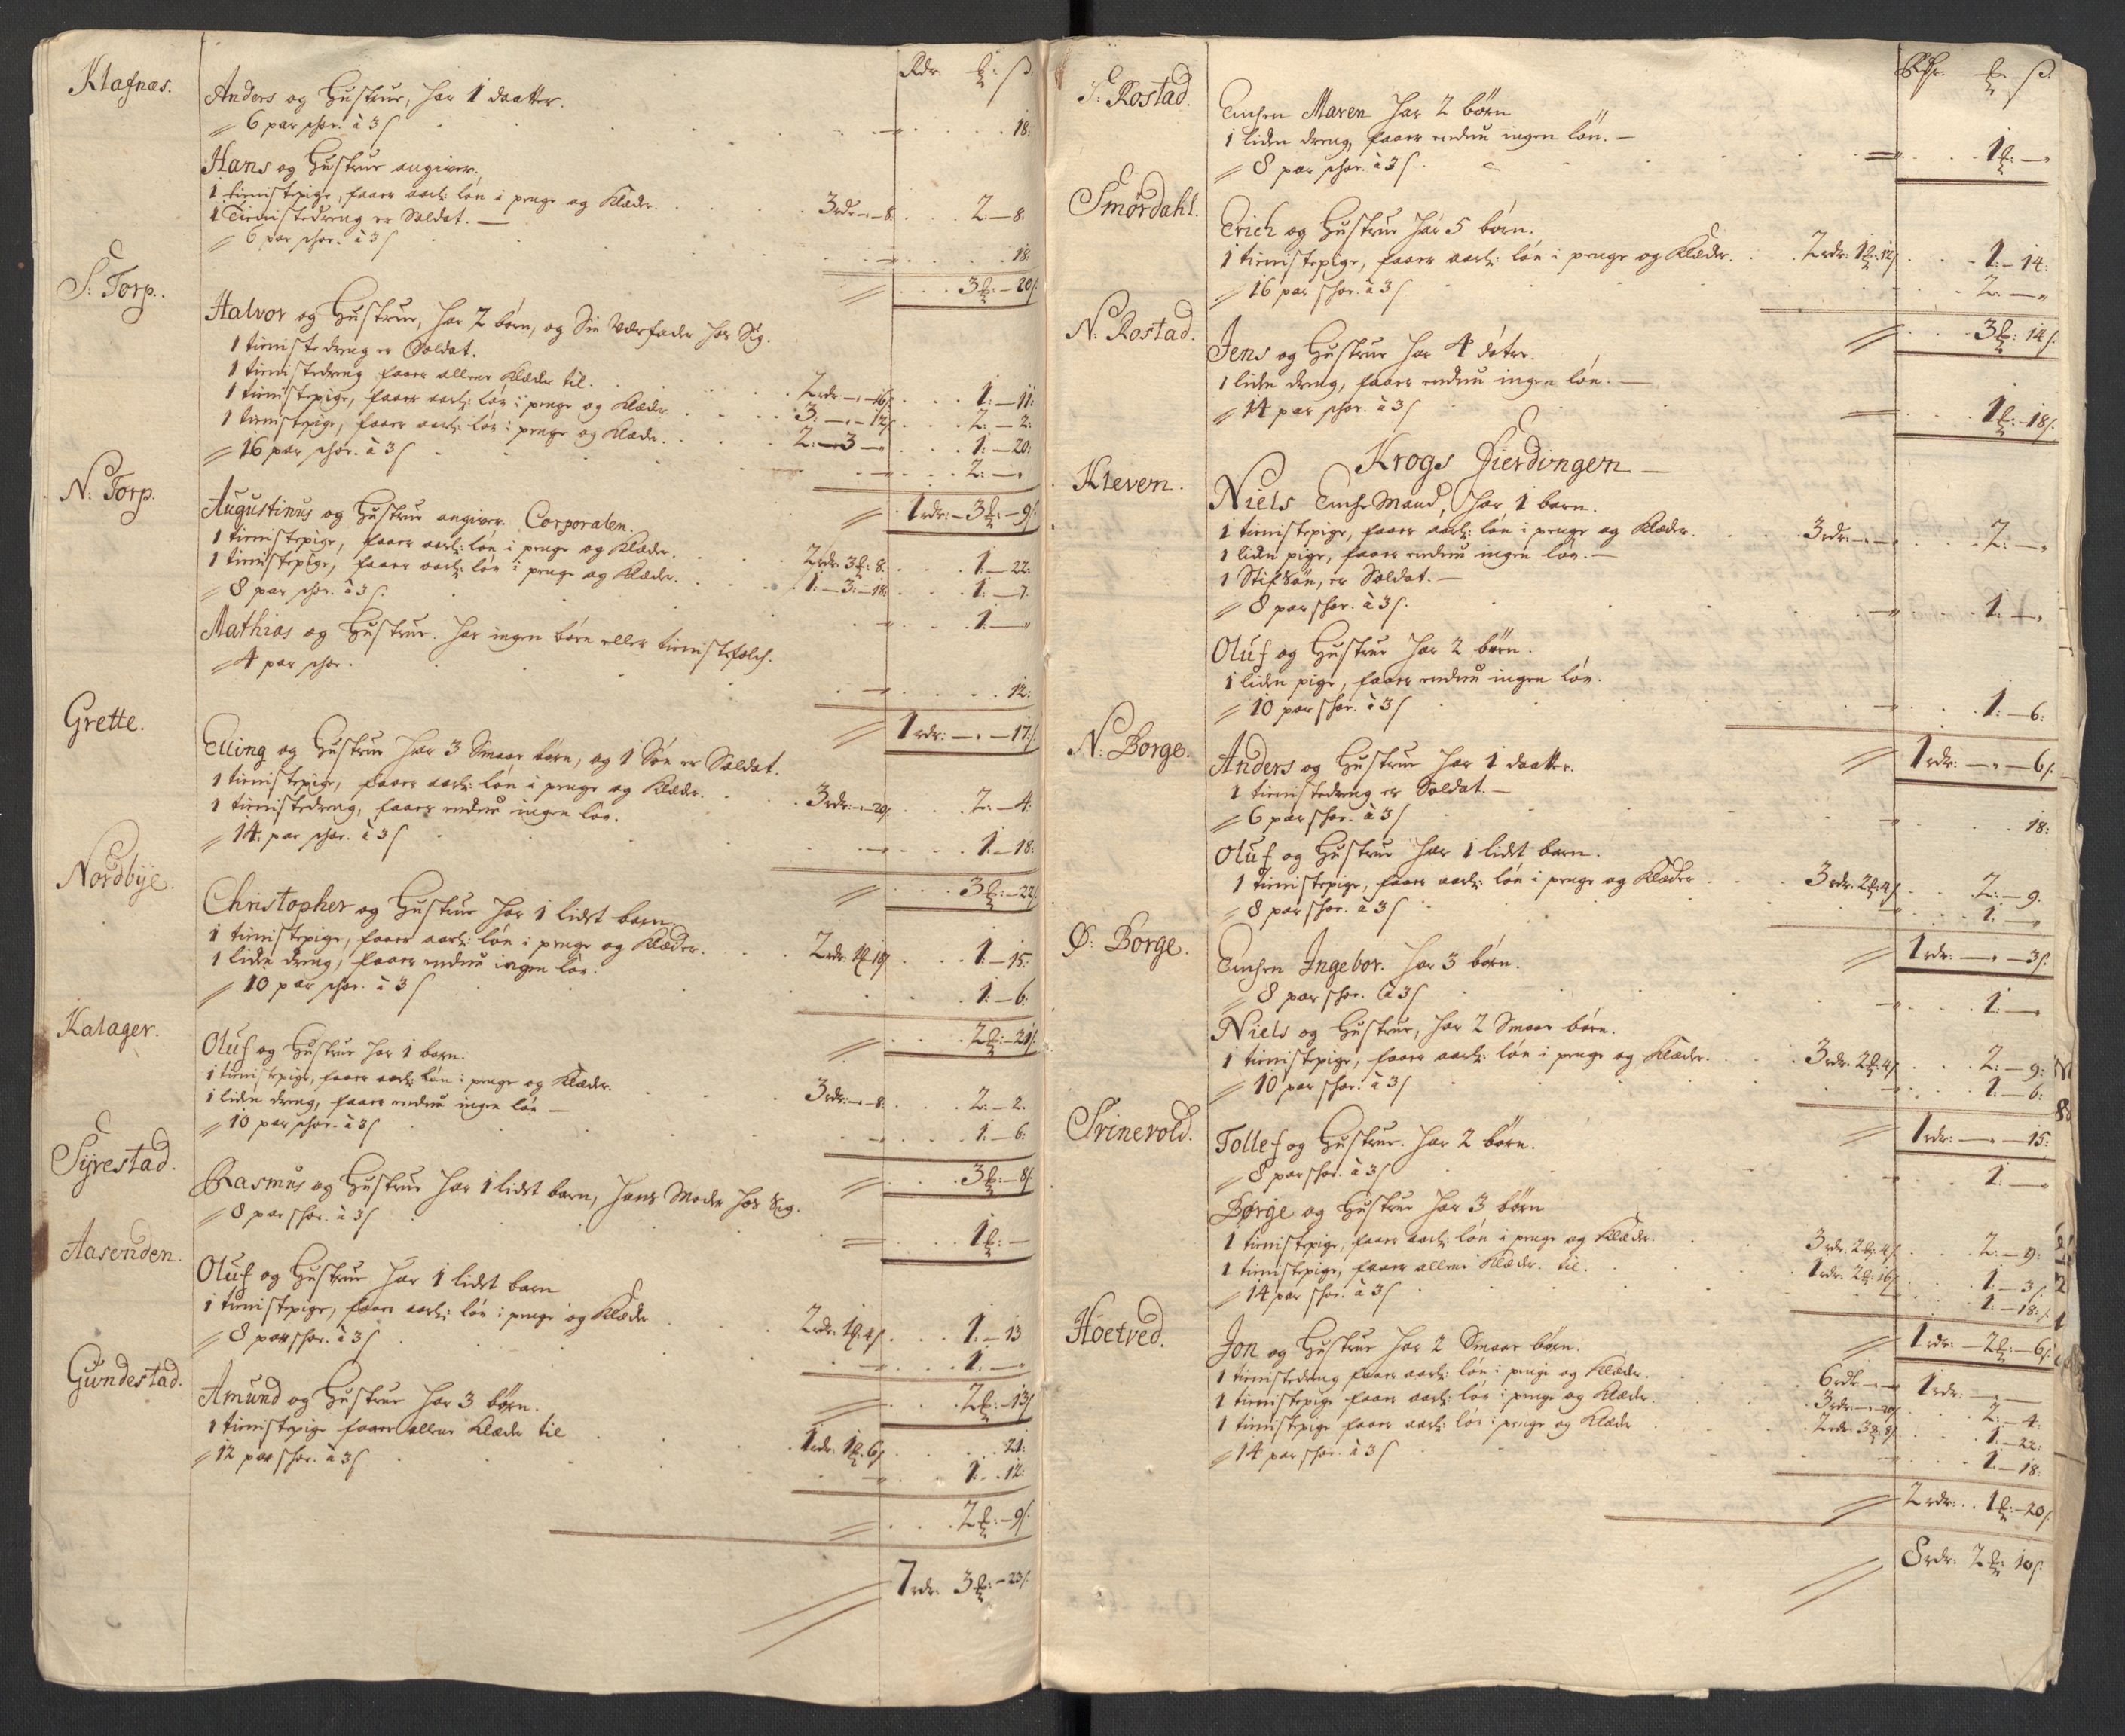 Rdr. ℔: ß.
Klafnæs.
Anders og Hustrue, har 1 daatter.
6 par schoe. à 3 ß 18:
Hans og Hustrue angiver.
1 tienistepige, faaer aarl: løn i penge og Klæder. 3 rdr. - 8. 2. - 8.
1 Tienistedreng er Soldat. —
6 par schoe. à 3 ß 18:
3 ℔: - 20 ß.
S: Torp.
Halvor og Hustrue, har 2 børn, og Sin Værfader hos Sig.
1 tienistedreng er Soldat.
1 tienistedreng faaer allene Klæder til. 2 rdr. - 16 ß. 1. - 11:
1 tienistepige, faaer aarl: løn i penge og Klæder. 3. - 12 ß. 2. - 2:
1 tienistepige, faaer aarl: løn i penge og Klæder. 2. - 3 - 1. - 20:
16 par schoe. à 3 ß 2. -
1 rdr: - 3 ℔: - 9 ß.
N: Torp.
Augustinus og Hustrue angiver. Corporalen.
1 tienistepige, faaer aarl: løn i penge og Klæder. 2 rdr. 3 ℔: 8. 1. - 22:
1 tienistepige, faaer aarl: løn i penge og Klæder. 1. - 3. - 18. 1. - 7.
8 par schoe. à 3 ß. 1. -
Mathias og Hustrue. har ingen børn eller tienistefolch.
4 par schoe. 12:
1 rdr: - 17 ß.
Grette.
Elling og Hustrue har 3 Smaae børn, og 1 Søn er Soldat.
1 tienistepige, faaer aarl: løn i penge og Klæder. 3 rdr. - 20 ß. 2. - 4.
1 tienistedreng, faaer endnu ingen løn.
14. par schoe. à 3 ß 1. - 18:
3 ℔: - 22 ß
Nordbÿe.
Christopher og Hustrue har 1 lidet barn.
1 tienistepige, faaer aarl: løn i penge og Klæder. 2 rdr. 1 ℔ 18 ß 1. - 15:
1 liden dreng, faaer endnu ingen løn.
10 par schoe. à 3 ß 1. - 6.
2 ℔: - 21 ß
Kalager.
Oluf og Hustrue har 1 barn.
1 tienistepige, faaer aarl: løn i penge og Klæder. 3 rdr. - 8. 2. - 2.
1 liden dreng, faaer endnu ingen løn —
10 par schoe. à 3 ß 1. - 6.
3 ℔: - 8 ß
Sÿrestad.
Rasmus og Hustrue har 1 lidet barn, hans Moder hos Sig.
8 par schoe. à 3 ß 1 ℔: -
Aasenden.
Oluf og Hustrue har 1 lidet barn
1 tienistepige, faaer aarl: løn i penge og Klæder 2 rdr. 1 ℔. 4 ß. 1. - 13
8 par schoe. à 3 ß 1. -
2 ℔: - 13 ß
Gundestad.
Amund og Hustrue har 3 børn.
1 tienistepige faaer allene Klæder til 1 rdr. 1 ℔. 6 ß 21:
12 par schoe. à 3 ß 1. - 12:
2 ℔: - 9 ß.
7 rdr. 3 ℔: - 23 ß.
Rdr. ℔ ß.
S: Rostad.
Enchen Maren har 2 børn
1 liden dreng, faaer endnu ingen løn. —
8 par schoe. à 3 ß 1 ℔: -
Smørdahl.
Erich og Hustrue har 5 børn.
1 tienistepige, faaer aarl: løn i penge og Klæder. 2 rdr. 1 ℔. 12 ß 1. - 14:
16 par schoe. à 3 ß 2. -
3 ℔: 14 ß.
N: Rostad.
Jens og Hustrue har 4 døtre.
1 liden dreng, faaer endnu ingen løn. —
14 par schoe. à 3 ß 1 ℔: - 18 ß.
Krogs Fierdingen —
Kleven.
Niels Enche Mand, har 1 barn.
1 tienistepige, faaer aarl: løn i penge og Klæder. 3 rdr. - 2. -
1 liden pige, faaer endnu ingen løn. —
1 Stifsøn, er Soldat. —
8 par schoe. à 3 ß. 1. -
Oluf og Hustrue har 2 børn.
1 liden pige, faaer endnu ingen løn.
10 par schoe. à 3 ß 1. - 6:
1 rdr: - 6 ß.
N: Borge.
Anders og Hustrue har 1 daatter.
1 tienistedreng er Soldat. —
6 par schoe. à 3 ß 18:
Oluf og Hustrue har 1 lidet barn.
1 tienistepige, faaer aarl: løn i penge og Klæder 3 rdr. 2 ℔. 4 ß 2. - 9.
8 par schoe. à 3 ß 1. -
1 rdr: - 3 ß.
Ø: Borge.
Enchen Ingebor. har 3 børn.
8 par schoe. à 3 ß 1. -
Niels og Hustrue, har 2 Smaae børn.
1 tienistepige, faaer aarl: løn i penge og Klæder. 3 rdr. 2 ℔. 4 ß 2. - 9:
10 par schoe. à 3 ß 1. - 6:
1 rdr: - 15:
Trinevold.
Tollef og Hustrue. har 2 børn.
8 par schoe. à 3 ß 1. -
Børge og Hustrue har 3 børn
1 tienistepige, faaer aarl: løn i penge og Klæder. 3 rdr. 2 ℔. 4 ß. 2. - 9:
1 tienistepige, faaer allene Klæder. til. 1 rdr. 2 ℔. 16 ß 1. - 3 ß.
14 par schoe. à 3 ß 1. - 18 ß.
1 rdr: - 2 ℔: - 6 ß.
Hoetved.
Jon og Hustrue har 2 Smaae børn.
1 tienistedreng faaer aarl: løn i penge og Klæder. 6 rdr. - 1 rdr: -
1 tienistepige faaer aarl: løn i penge og Klæder. 3 rdr. - 20 ß 2. - 4:
1 tienistepige faaer aarl: løn i penge og Klæder 2 rdr. 3 ℔. 8 ß 1. - 22:
14 par schoe. à 3 ß 1. - 18:
2 rdr. 1 ℔: - 20 ß.
8 rdr. 2 ℔: 10 ß.